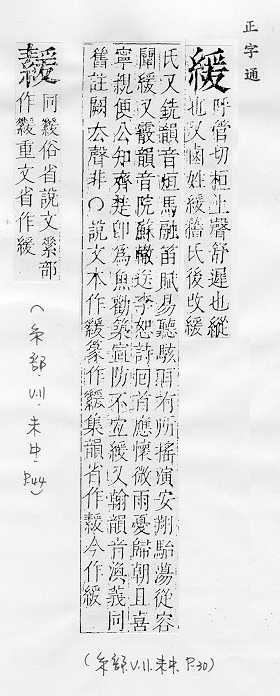 正字通
緩
呼管切桓上聲舒遲也縱
也又鹵姓緩稽氏後改緩
氏又銑韻音烜馬融笛賦易聽駭耳有所搖演安翔駘蕩從容
闡緩又霰韻音院蘇轍送李恕詩回首應懷微雨憂歸朝且喜
寧親便公知齊楚卽爲魚勸築宣防不宜緩又翰韻音渙義同
舊註闕去聲非○說文本作 篆作 集韻省作 今作緩
(糸部.V.11.未中.P.30)
同 俗省說文素部
作 重文省作緩
(糸部.V.11.未中.P.44)